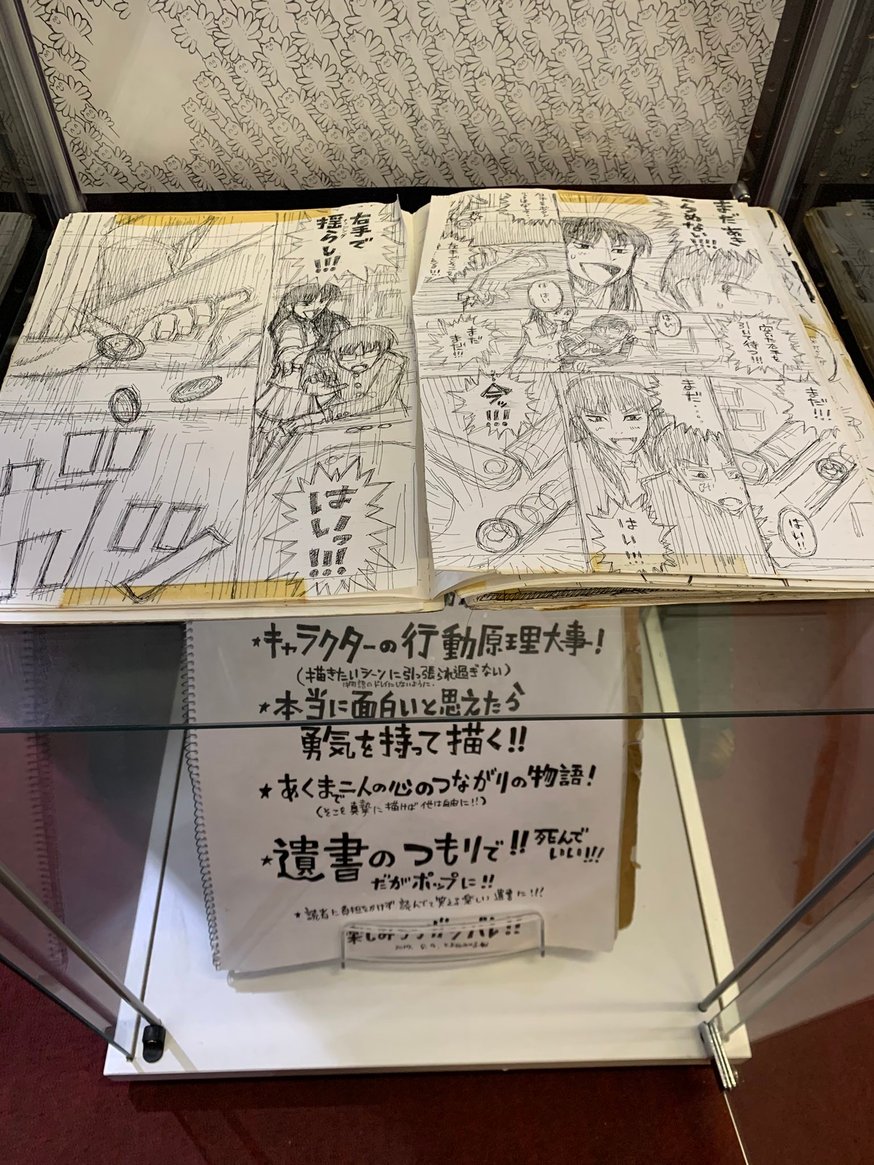 まだ、あき
らめない!!!!
はい!
空いた右手を
引いて待つ!!!
まだ
まだ!!!
まだ!!!
はい!!
まだ…
はい!!!
今ッ
!!!!
右手で
揺らし!!!!
はいッ!!!
ガン
★キャラクターの行動原理大事!
(描きたいシーンに引っ張られ過ぎない)
物語のドレイにしないように。
★本当に面白いと思えたら
勇気を持って描く!!
★あくまで二人の心のつながりの物語!
(そこを真摯に描けば他は自由に!!)
★遺書のつもりで!! 死んで
いい!!!
だがポップに!!
★読者に負担をかけず読んでて笑える楽しい遺書に!!!
楽しみつつガンバレ!!